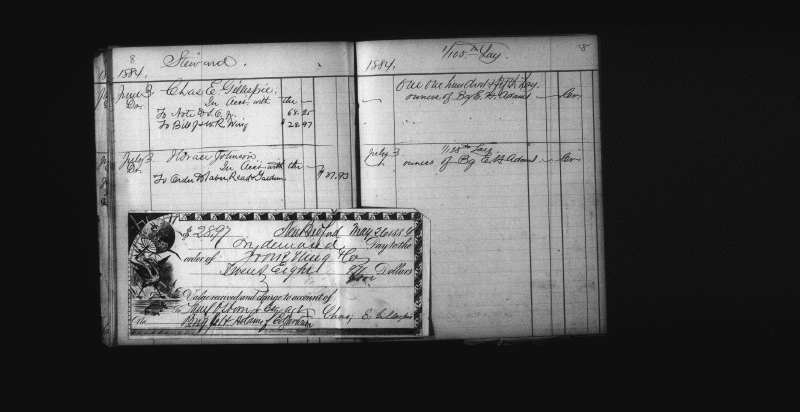 8
Steward.
1884.
June 3. Chas E. Gillespie
Dr. In Acct with the
To Note D.S.C. Jr. 68.25
To Bill J & W.R. Wing $ 28.97
July 3. Horace Johnson
Dr. In Acct with the
To Order Taber, Read & Gardner $ 37.90
1/105th Lay.
8
1884.
One One hundred & fifth Lay.
owners of Bg E. H. Adams Cr.
July 3 1/125th Lay
owners of Bg E H Adams Cr.
$ 28.97 New Bedford May 26 188 4
On demand Pay to the
order of Wing & Co
Twenty Eight 97/100 Dollars
Value received and charge to account of
To
Berg E H Adams Chas E. Gillespie
No.